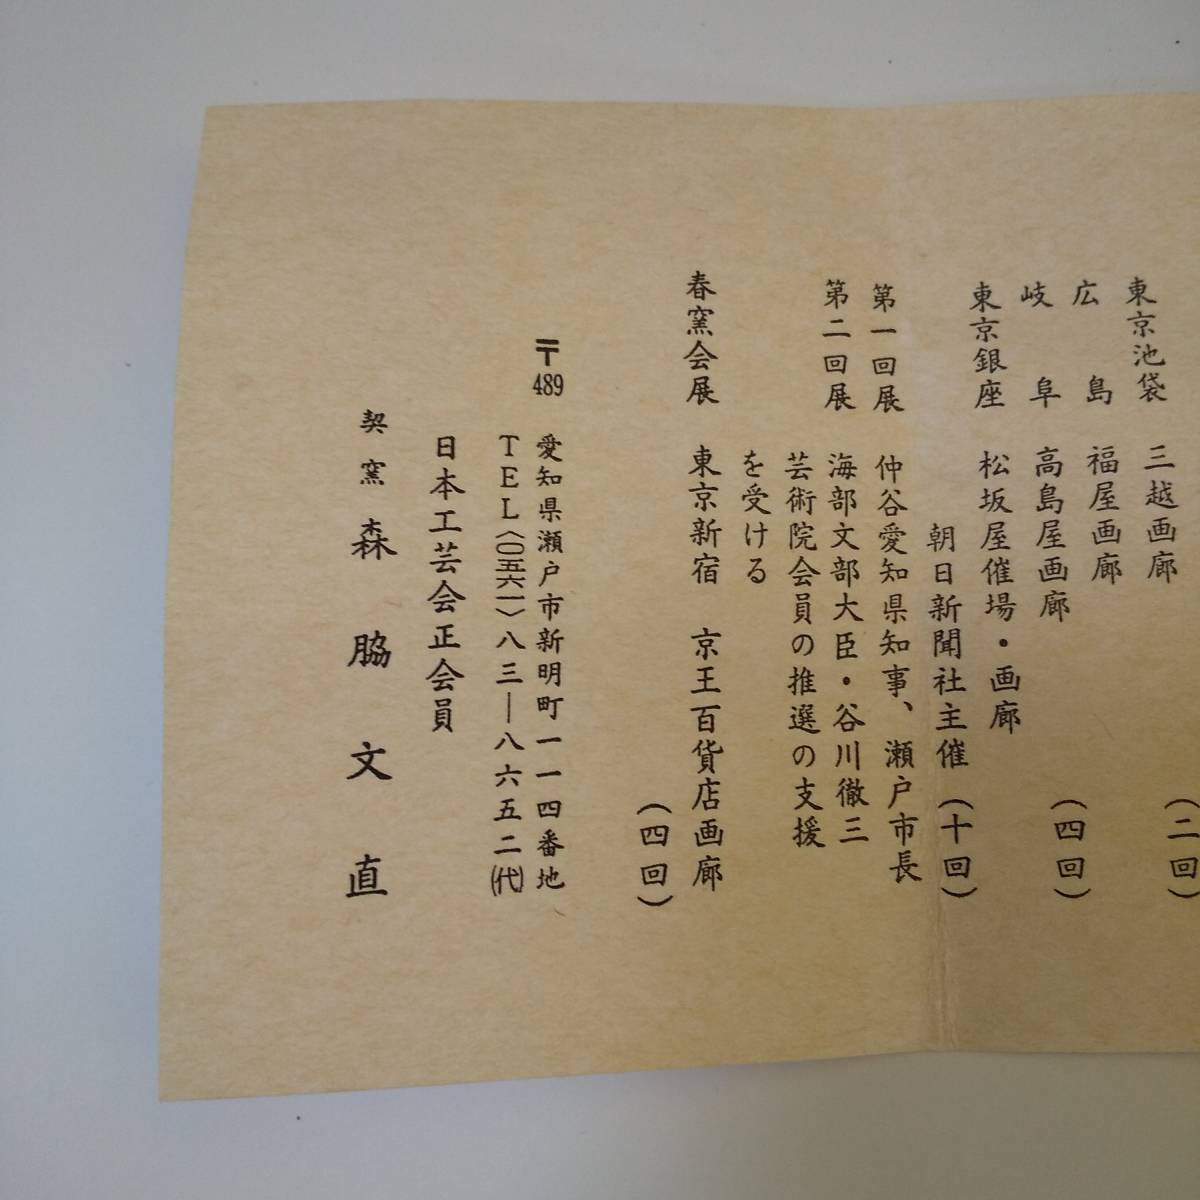 東京池袋 三越画廊
(二回)
広島 福屋画廊
岐阜 高島屋画廊
(四回)
東京銀座 松坂屋催場・画廊
朝日新聞社主催(十回)
第一回展 仲谷愛知県知事、瀬戸市長
第二回展 海部文部大臣・谷川徹三
芸術院会員の推選の支援
を受ける
春窯会展 東京新宿 京王百貨店画廊
(四回)
〒489 愛知県瀬戸市新明町一一四番地
TEL〈〇五六一〉八三―八六五二(代)
日本工芸会正会員
契窯 森脇文直